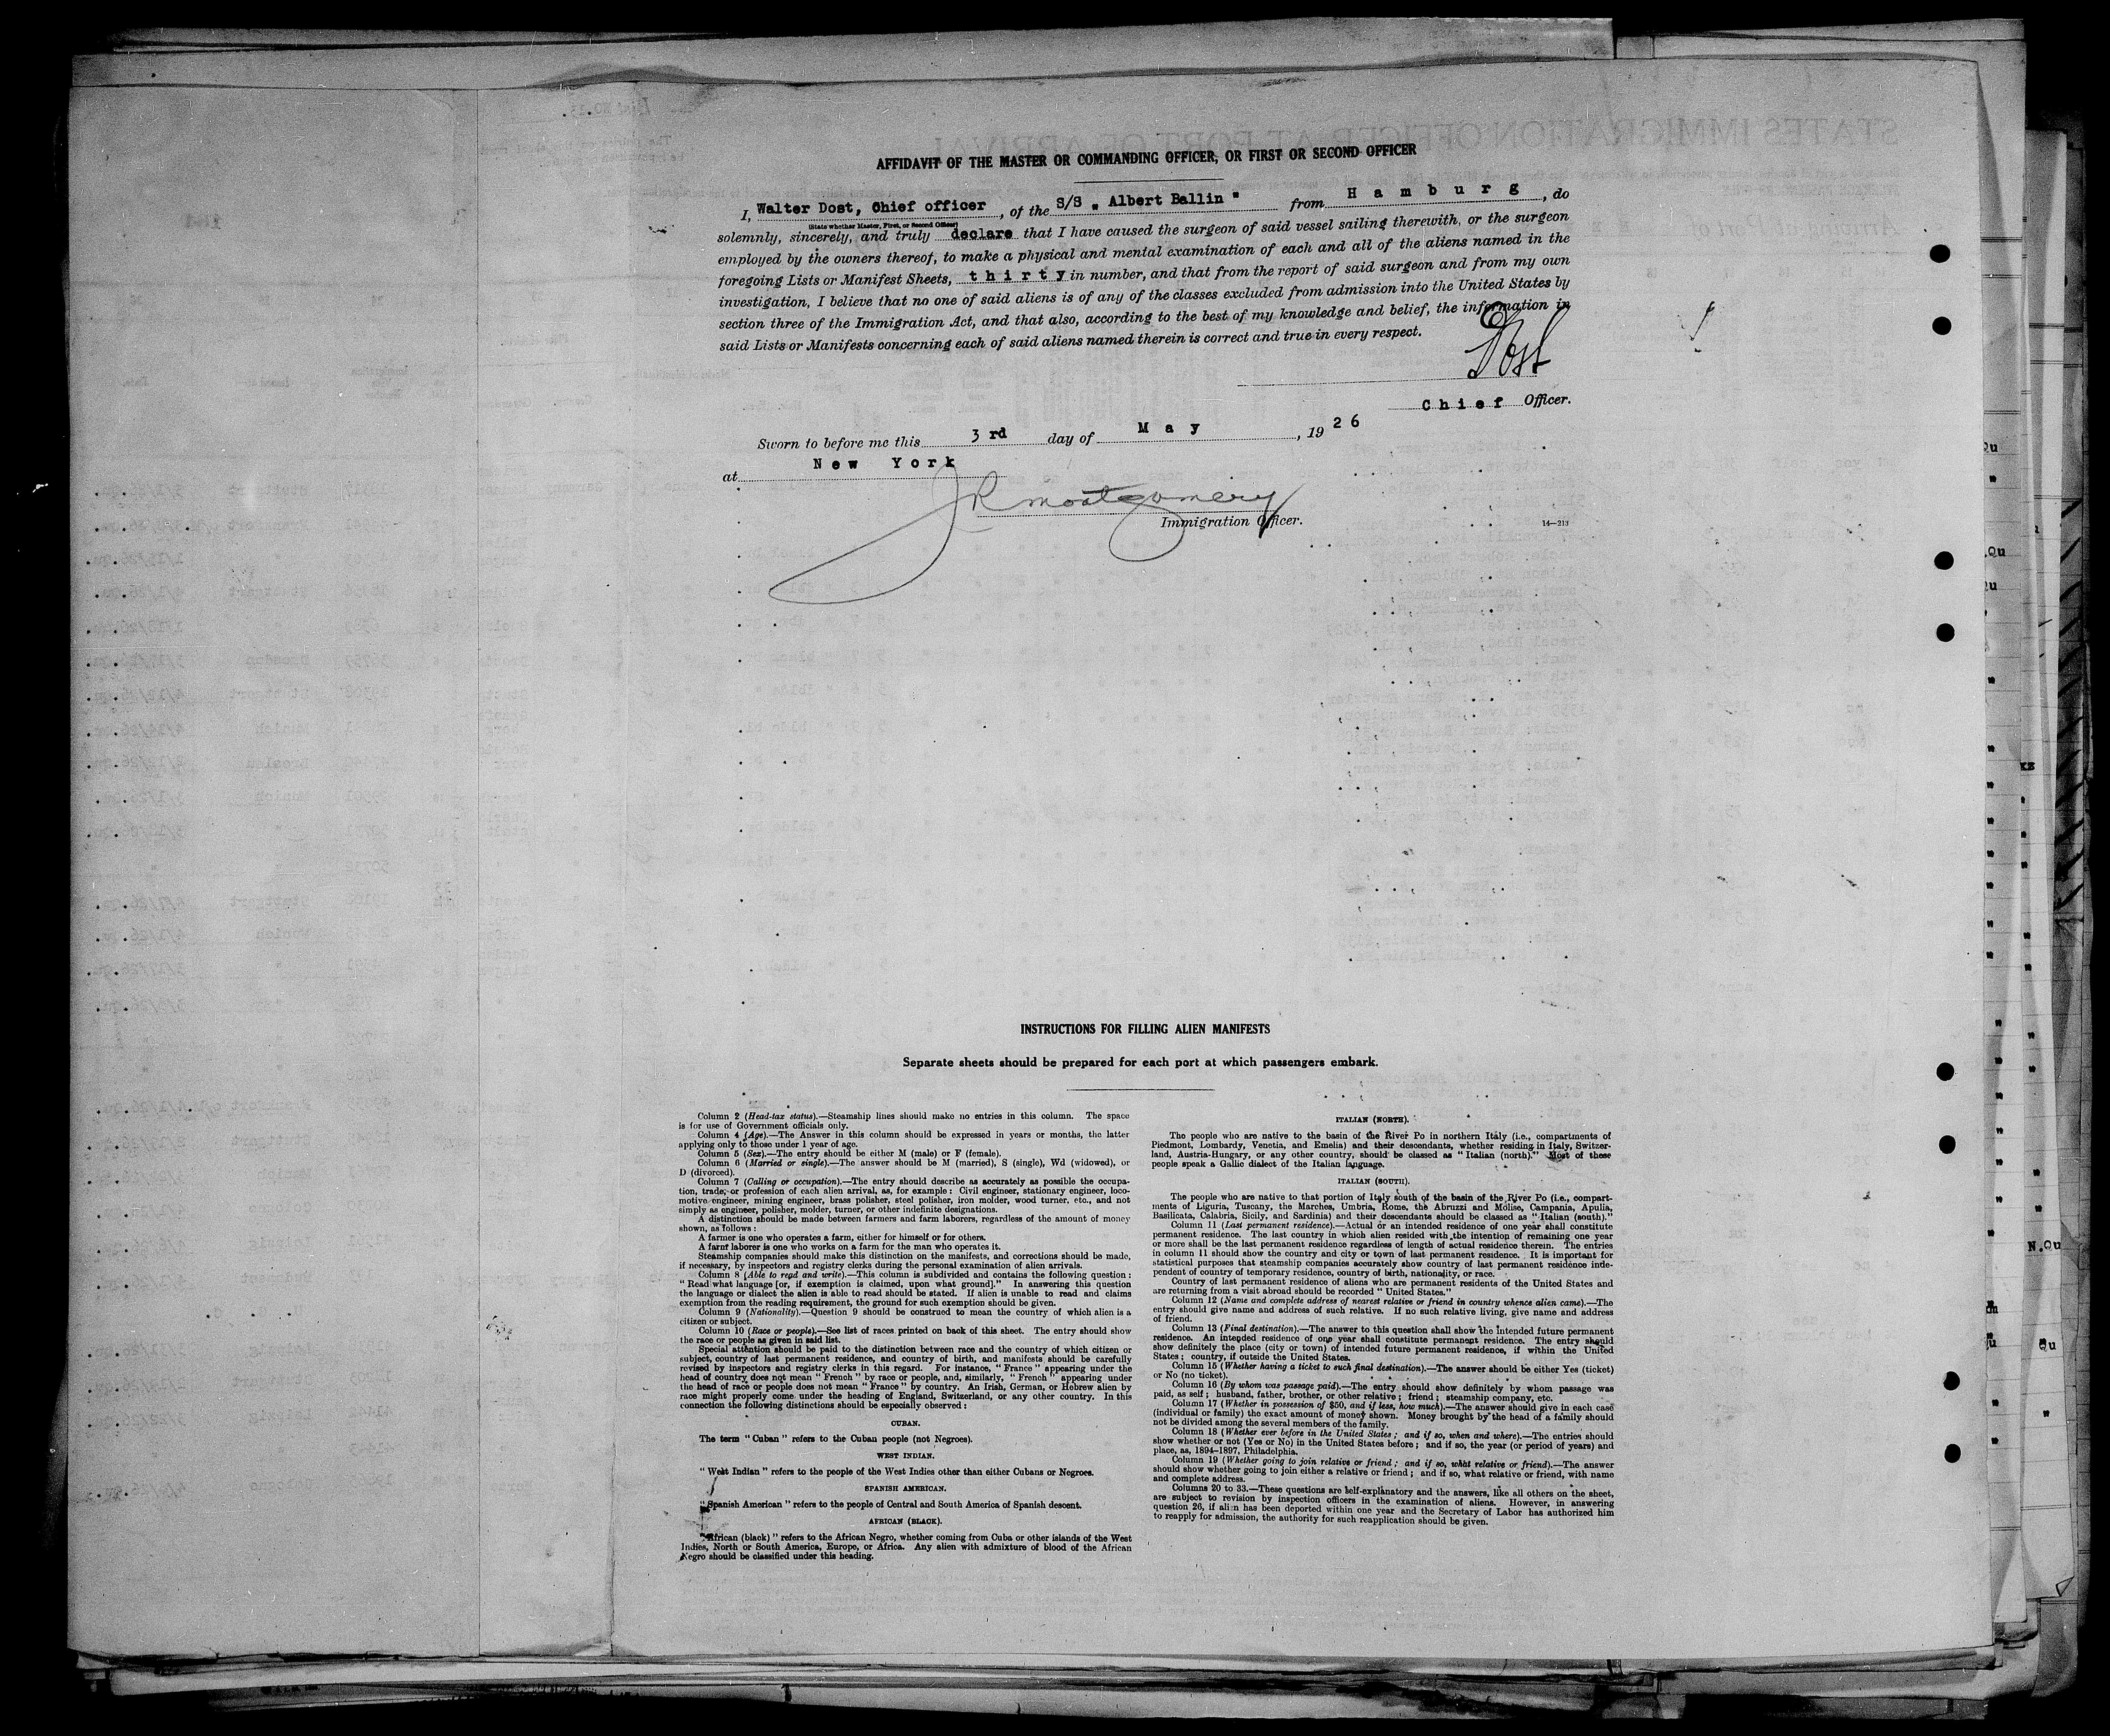 AFFIDAVIT OF THE MASTER OR COMMANDING OFFICER, OR FIRST OR SECOND OFFICER
I, Walter Dost, Chief officer, of the S/S „ Albert Ballin " from Hamburg, do
(State whether Master, First, or Second Officer)
solemnly, sincerely, and truly declare that I have caused the surgeon of said vessel sailing therewith, or the surgeon
employed by the owners thereof, to make a physical and mental examination of each and all of the aliens named in the
foregoing Lists or Manifest Sheets, thirty in number, and that from the report of said surgeon and from my own
investigation, I believe that no one of said aliens is of any of the classes excluded from admission into the United States by
section three of the Immigration Act, and that also, according to the best of my knowledge and belief, the information in
said Lists or Manifests concerning each of said aliens named therein is correct and true in every respect.
Dost
Chief Officer.
Sworn to before me this 3rd day of May, 1926
at New York
JR Montgomery
Immigration Officer.
14—213
INSTRUCTIONS FOR FILLING ALIEN MANIFESTS
Separate sheets should be prepared for each port at which passengers embark.
Column 2 (Head-tax status).—Steamship lines should make no entries in this column. The space
is for use of Government officials only.
Column 4 (Age).—The Answer in this column should be expressed in years or months, the latter
applying only to those under 1 year of age.
Column 5 (Sex).—The entry should be either M (male) or F (female).
Column 6 (Married or single).—The answer should be M (married), S (single), Wd (widowed), or
D (divorced).
Column 7 (Calling or occupation).—The entry should describe as accurately as possible the occupa-
tion, trade, or profession of each alien arrival, as, for example: Civil engineer, stationary engineer, loco-
motive engineer, mining engineer, brass polisher, steel polisher, iron molder, wood turner, etc., and not
simply as engineer, polisher, molder, turner, or other indefinite designations.
A distinction should be made between farmers and farm laborers, regardless of the amount of money
shown, as follows:
A farmer is one who operates a farm, either for himself or for others.
A farm laborer is one who works on a farm for the man who operates it.
Steamship companies should make this distinction on the manifests, and corrections should be made,
if necessary, by inspectors and registry clerks during the personal examination of alien arrivals.
Column 8 (Able to read and write).—This column is subdivided and contains the following question:
"Read what language [or, if exemption is claimed, upon what ground]." In answering this question
the language or dialect the alien is able to read should be stated. If alien is unable to read and claims
exemption from the reading requirement, the ground for such exemption should be given.
Column 9 (Nationality).—Question 9 should be construed to mean the country of which alien is a
citizen or subject.
Column 10 (Race or people).—See list of races printed on back of this sheet. The entry should show
the race or people as given in said list.
Special attention should be paid to the distinction between race and the country of which citizen or
subject, country of last permanent residence, and country of birth, and manifests should be carefully
revised by inspectors and registry clerks in this regard. For instance, "France" appearing under the
head of country does not mean "French" by race or people, and, similarly, "French" appearing under
the head of race or people does not mean "France" by country. An Irish, German, or Hebrew alien by
race might properly come under the heading of England, Switzerland, or any other country. In this
connection the following distinctions should be especially observed:
CUBAN.
The term "Cuban" refers to the Cuban people (not Negroes).
WEST INDIAN.
"West Indian" refers to the people of the West Indies other than either Cubans or Negroes.
SPANISH AMERICAN.
"Spanish American" refers to the people of Central and South America of Spanish descent.
AFRICAN (BLACK).
"African (black)" refers to the African Negro, whether coming from Cuba or other islands of the West
Indies, North or South America, Europe, or Africa. Any alien with admixture of blood of the African
Negro should be classified under this heading.
ITALIAN (NORTH).
The people who are native to the basin of the River Po in northern Italy (i.e., compartments of
Piedmont, Lombardy, Venetia, and Emelia) and their descendants, whether residing in Italy, Switzer-
land, Austria-Hungary, or any other country, should be classed as "Italian (north)." Most of these
people speak a Gallic dialect of the Italian language.
ITALIAN (SOUTH).
The people who are native to that portion of Italy south of the basin of the River Po (i.e., compart-
ments of Liguria, Tuscany, the Marches, Umbria, Rome, the Abruzzi and Molise, Campania, Apulia,
Basilicata, Calabria, Sicily, and Sardinia) and their descendants should be classed as "Italian (south)."
Column 11 (Last permanent residence).—Actual or an intended residence of one year shall constitute
permanent residence. The last country in which alien resided with the intention of remaining one year
or more shall be the last permanent residence regardless of length of actual residence therein. The entries
in column 11 should show the country and city or town of last permanent residence. It is important for
statistical purposes that steamship companies accurately show country of last permanent residence inde-
pendent of country of temporary residence, country of birth, nationality, or race.
Country of last permanent residence of aliens who are permanent residents of the United States and
are returning from a visit abroad should be recorded "United States."
Column 12 (Name and complete address of nearest relative or friend in country whence alien came).—The
entry should give name and address of such relative. If no such relative living, give name and address
of friend.
Column 13 (Final destination).—The answer to this question shall show the intended future permanent
residence. An intended residence of one year shall constitute permanent residence. The entry should
show definitely the place (city or town) of intended future permanent residence, if within the United
States; country, if outside the United States.
Column 15 (Whether having a ticket to such final destination).—The answer should be either Yes (ticket)
or No (no ticket).
Column 16 (By whom was passage paid).—The entry should show definitely by whom passage was
paid, as self; husband, father, brother, or other relative; friend; steamship company, etc.
Column 17 (Whether in possession of $50, and if less, how much).—The answer should give in each case
(individual or family) the exact amount of money shown. Money brought by the head of a family should
not be divided among the several members of the family.
Column 18 (Whether ever before in the United States; and if so, when and where).—The entries should
show whether or not (Yes or No) in the United States before; and if so, the year (or period of years) and
place, as, 1894–1897, Philadelphia.
Column 19 (Whether going to join relative or friend; and if so, what relative or friend).—The answer
should show whether going to join either a relative or friend; and if so, what relative or friend, with name
and complete address.
Columns 20 to 33.—These questions are self-explanatory and the answers, like all others on the sheet,
are subject to revision by inspection officers in the examination of aliens. However, in answering
question 26, if alien has been deported within one year and the Secretary of Labor has authorized him
to reapply for admission, the authority for such reapplication should be given.